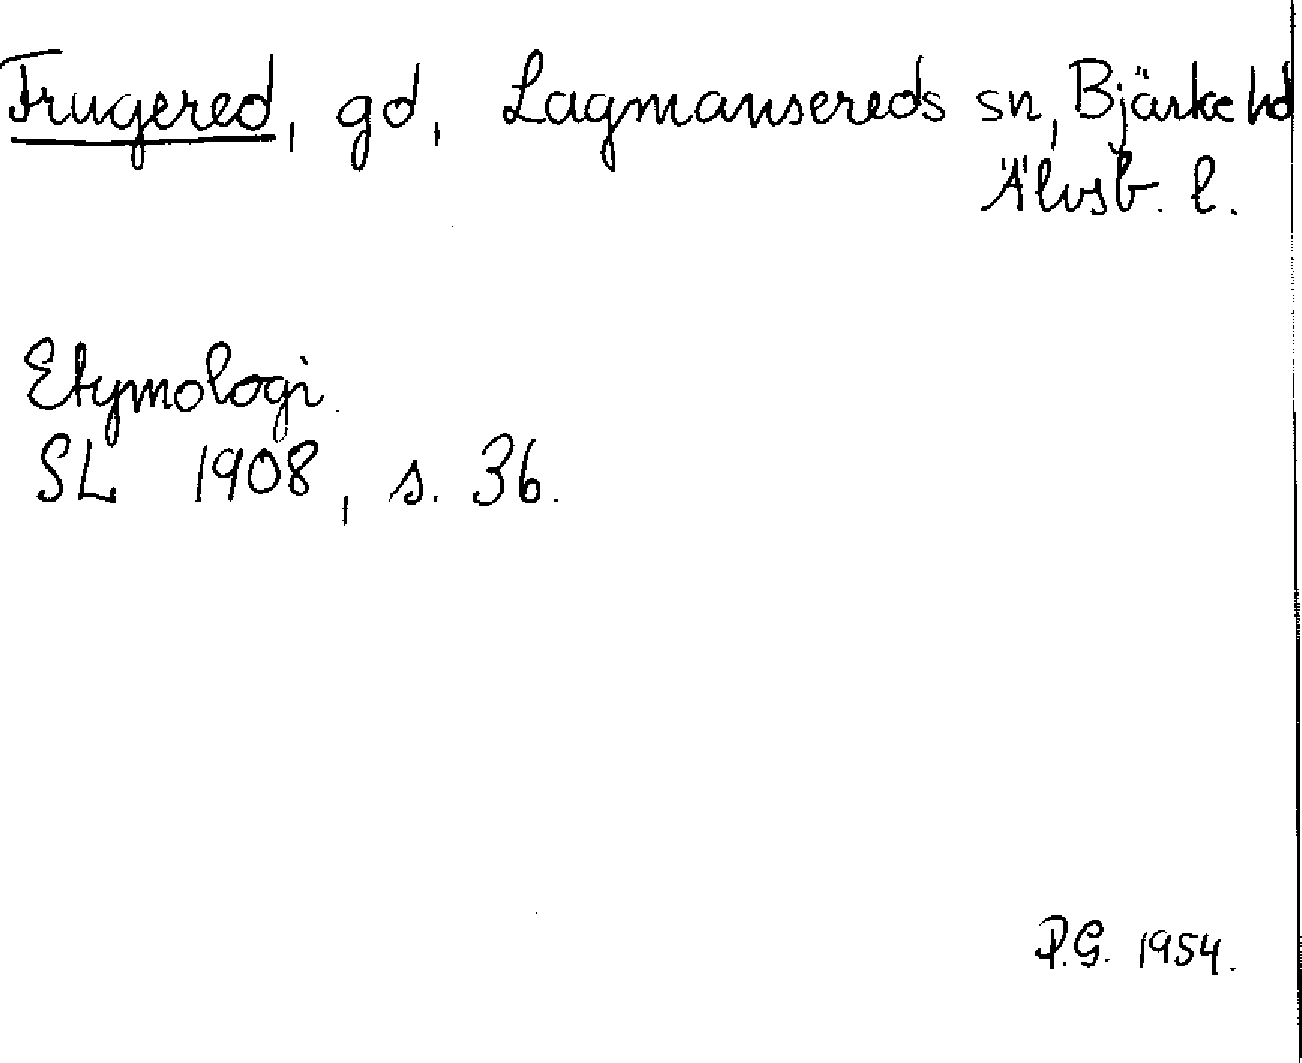 Frugered, gd, Lagmansereds sn, Bjärke hd
Älvsb. l.
Etymologi.
SL 1908, s. 36.
P.G. 1954.